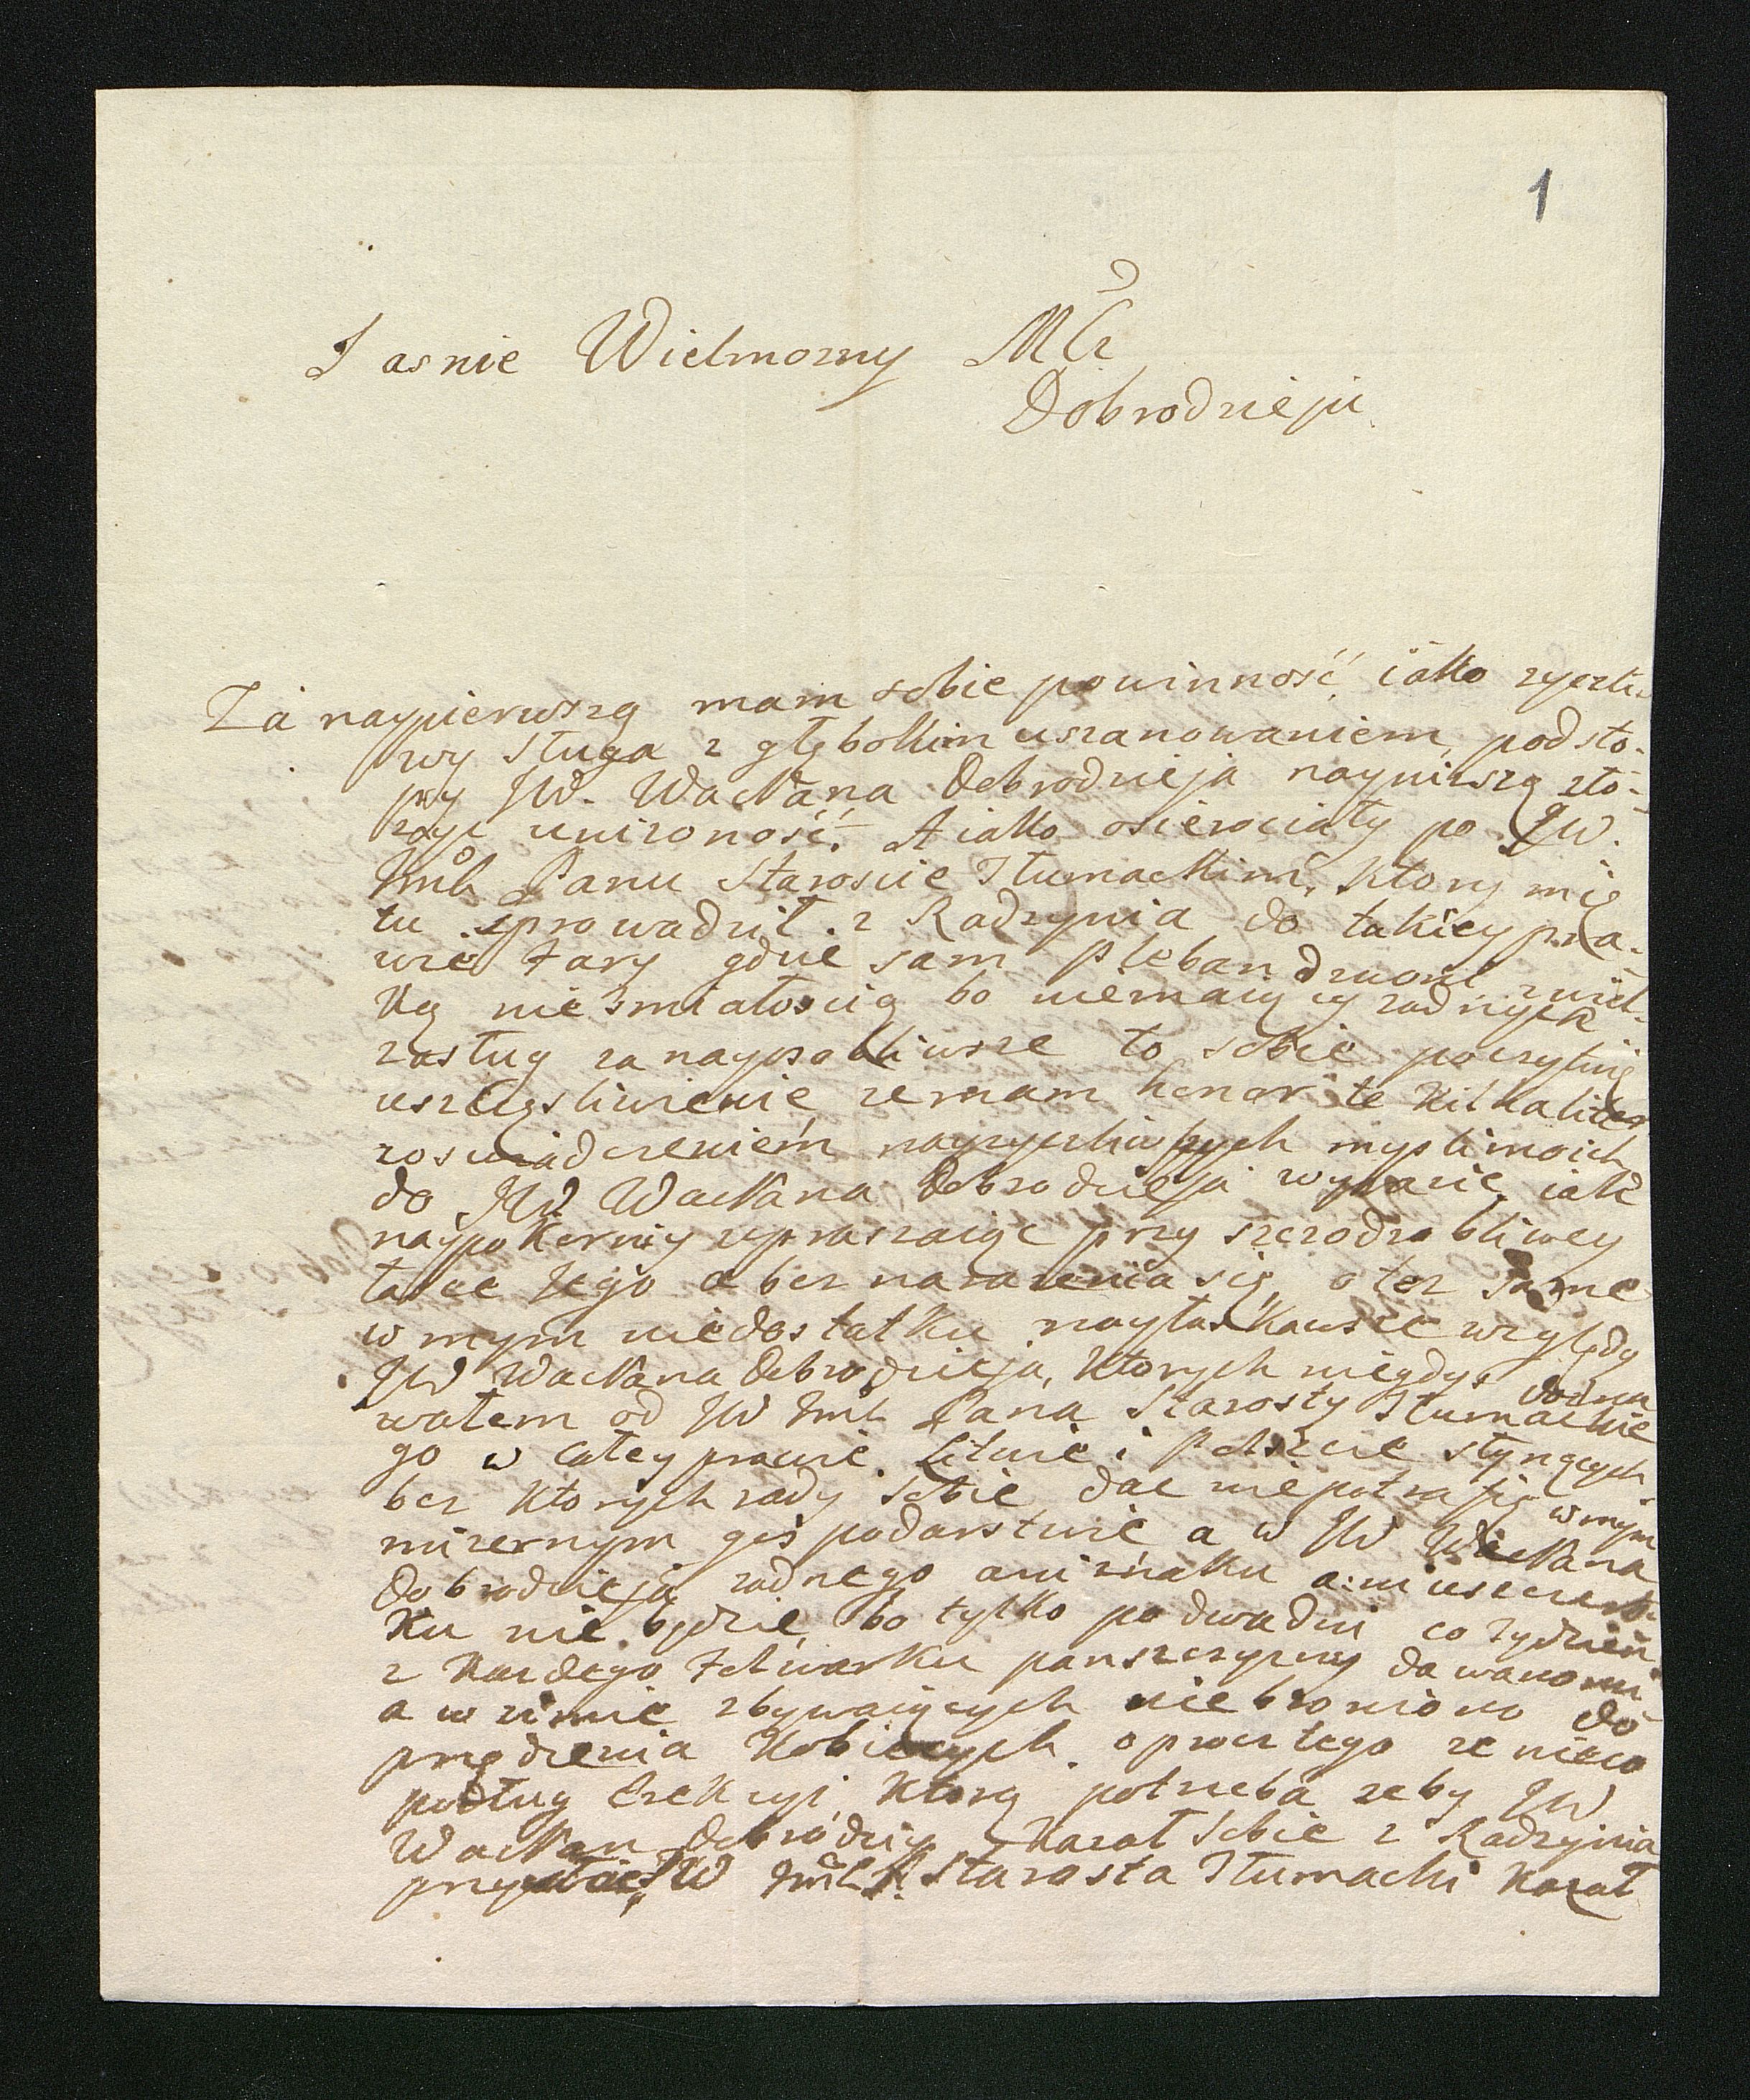 1
Jasnie Wielmozny Mći
Dobrodzieju
Za naypierwszą mam sobie powinność iako zyczli-
wy sługa z głębokim uszanowaniem, pod sto-
py JW. WacPana Dobrodzieja nayniszą zło-
zyc unizoność. A iako osierociały po JW.
Jmć Panu Starosie Tłumackim, ktory mię
tu zprowadził z Radzynia do takiey pra-
wie Fary gdzie sam Pleban dzwoni z wiel-
ką niesmiałosią bo niemaiący zadnych
zasług za nayosobliwsze to sobie poczytuię
uszczęsliwienie ze mam honor te kilka liter
zoswiadczeniem nayzyczliwszych mysli moich
do JW WacPana Dobrodzieja wyrazic, iak
naypokorniey upraszaiąc przy szczodrobliwey
łasce Jego a bez narazenia się, o tez same
w mym niedostatku nayłaskawsze względy
JW WacPana Dobrodzieja, ktorych niegdys dozna
wałem od JW Jmć Pana Starosty Tłumackie
go w całey prawie Litwie i Polszcie słynących
bez ktorych rady sobie dac niepotrafię w mym
mizernym gospodarstwie a w JW WacPana
Dobrodzieja zadnego ani znaku ani uszczerb-
ku nie będzie, bo tylko po dwa dni co tydzien
z kazdego Folwarku panszczyzny dawano mi
a w zimie zbywaiących niebroniono do
przędzenia kobiecych oprocz tego ze nieco
podług Erekcyi, ktorą potrzeba zeby JW
WacPan Dobrodziey kazał sobie z Radzynia
JW Jmć P. Starosta Tłumacki kazał